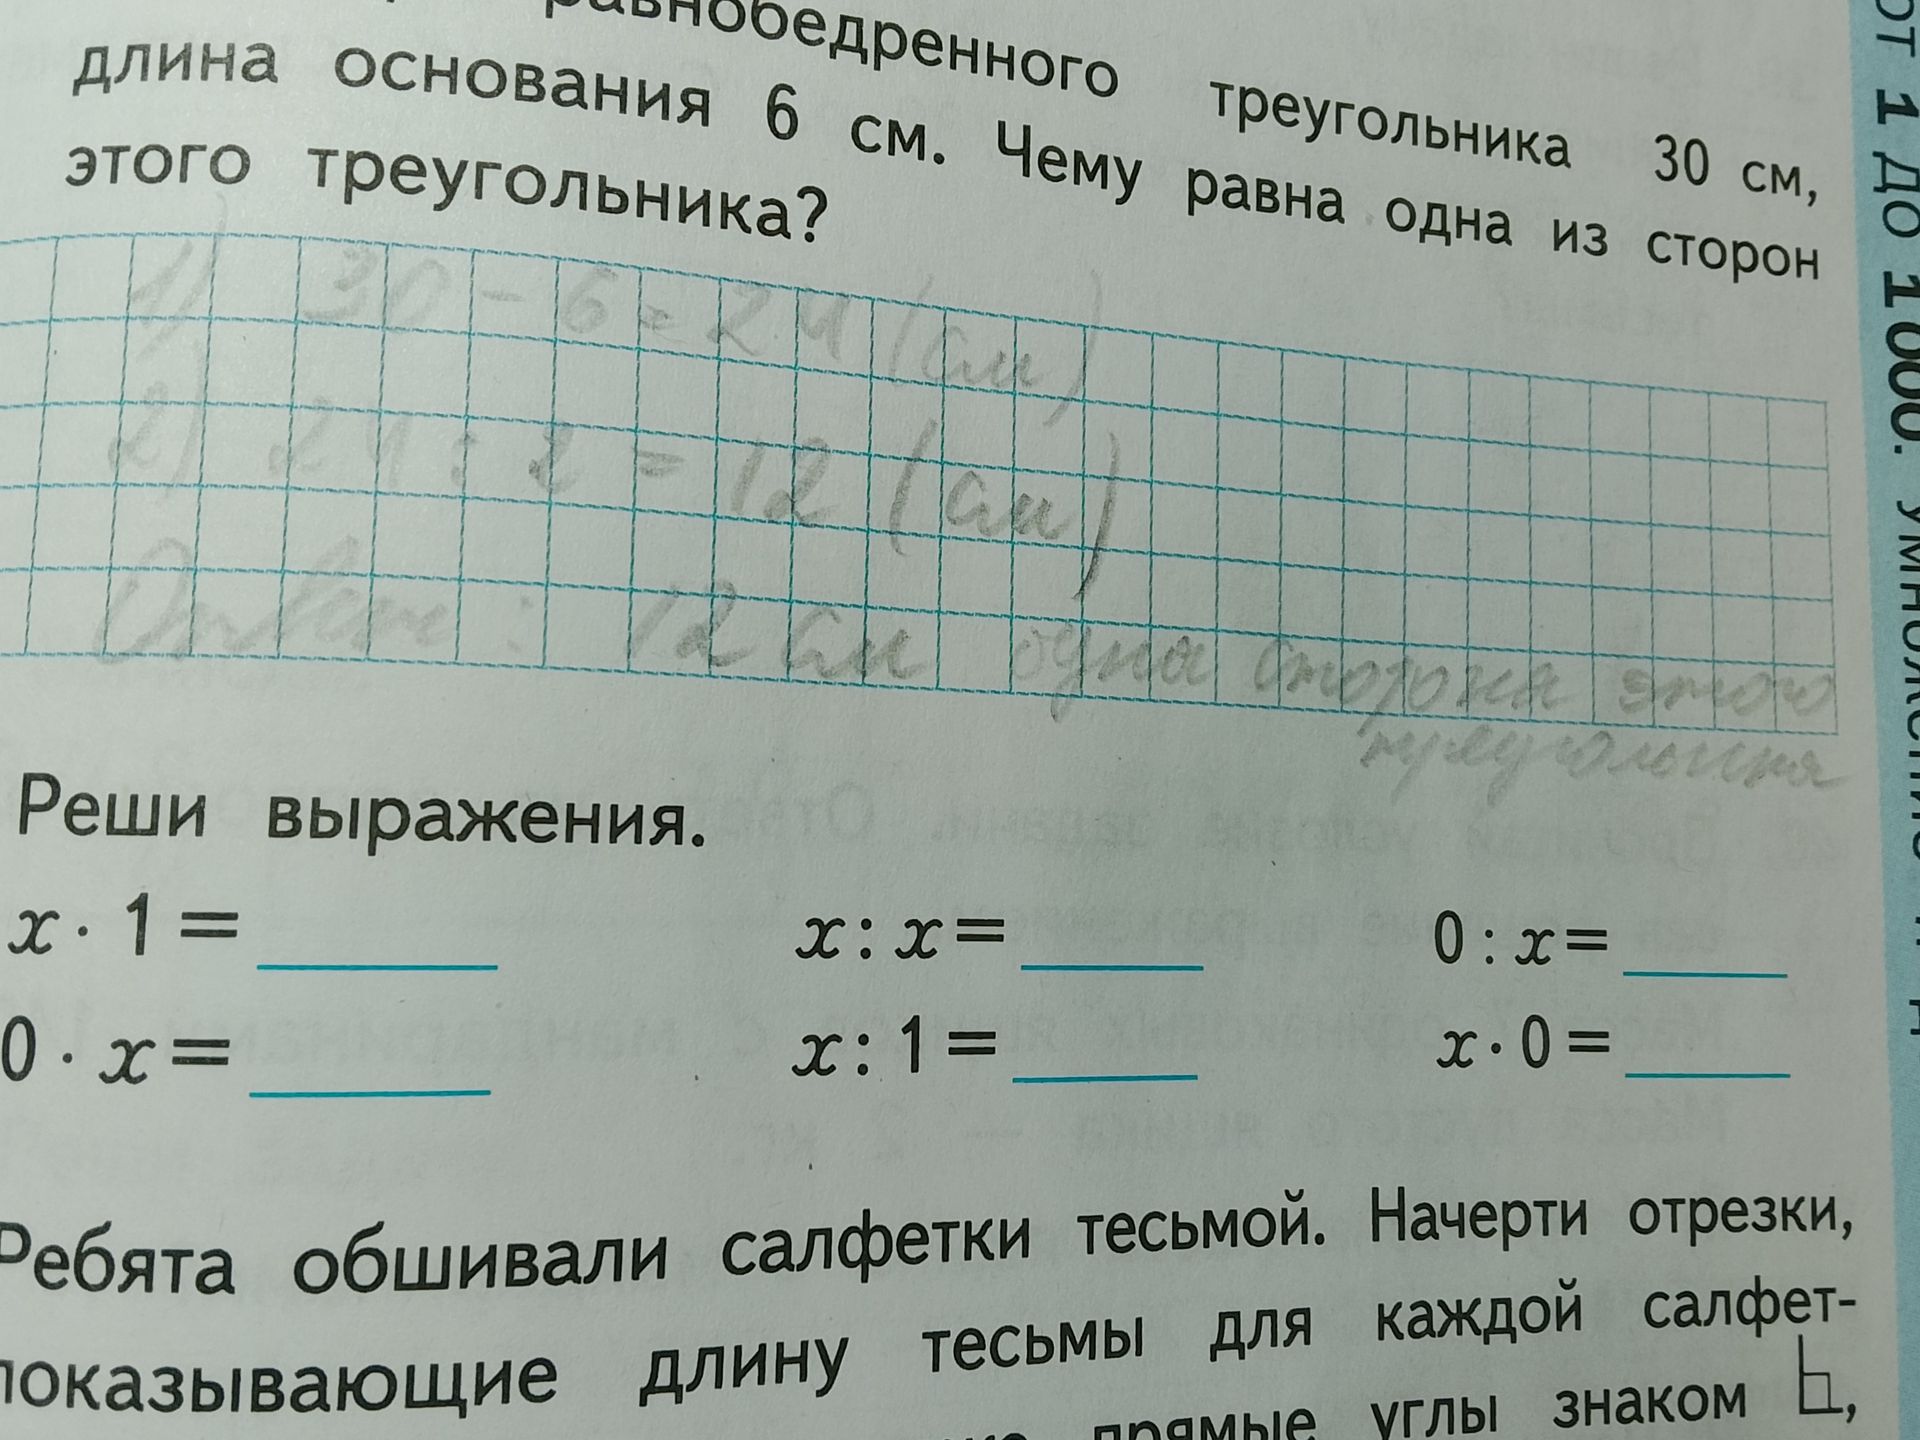 равнобедренного треугольника 30 см,
длина основания 6 см. Чему равна одна из сторон
этого треугольника?
1) 30 - 6 = 24 (см)
2) 24 : 2 = 12 (см)
Ответ: 12 см одна сторона этого
треугольника
Реши выражения.
x · 1 =
x : x =
0 : x =
0 · x =
x : 1 =
x · 0 =
Ребята обшивали салфетки тесьмой. Начерти отрезки,
показывающие длину тесьмы для каждой салфет-
прямые углы знаком
от 1 до 1000. Умножение и д